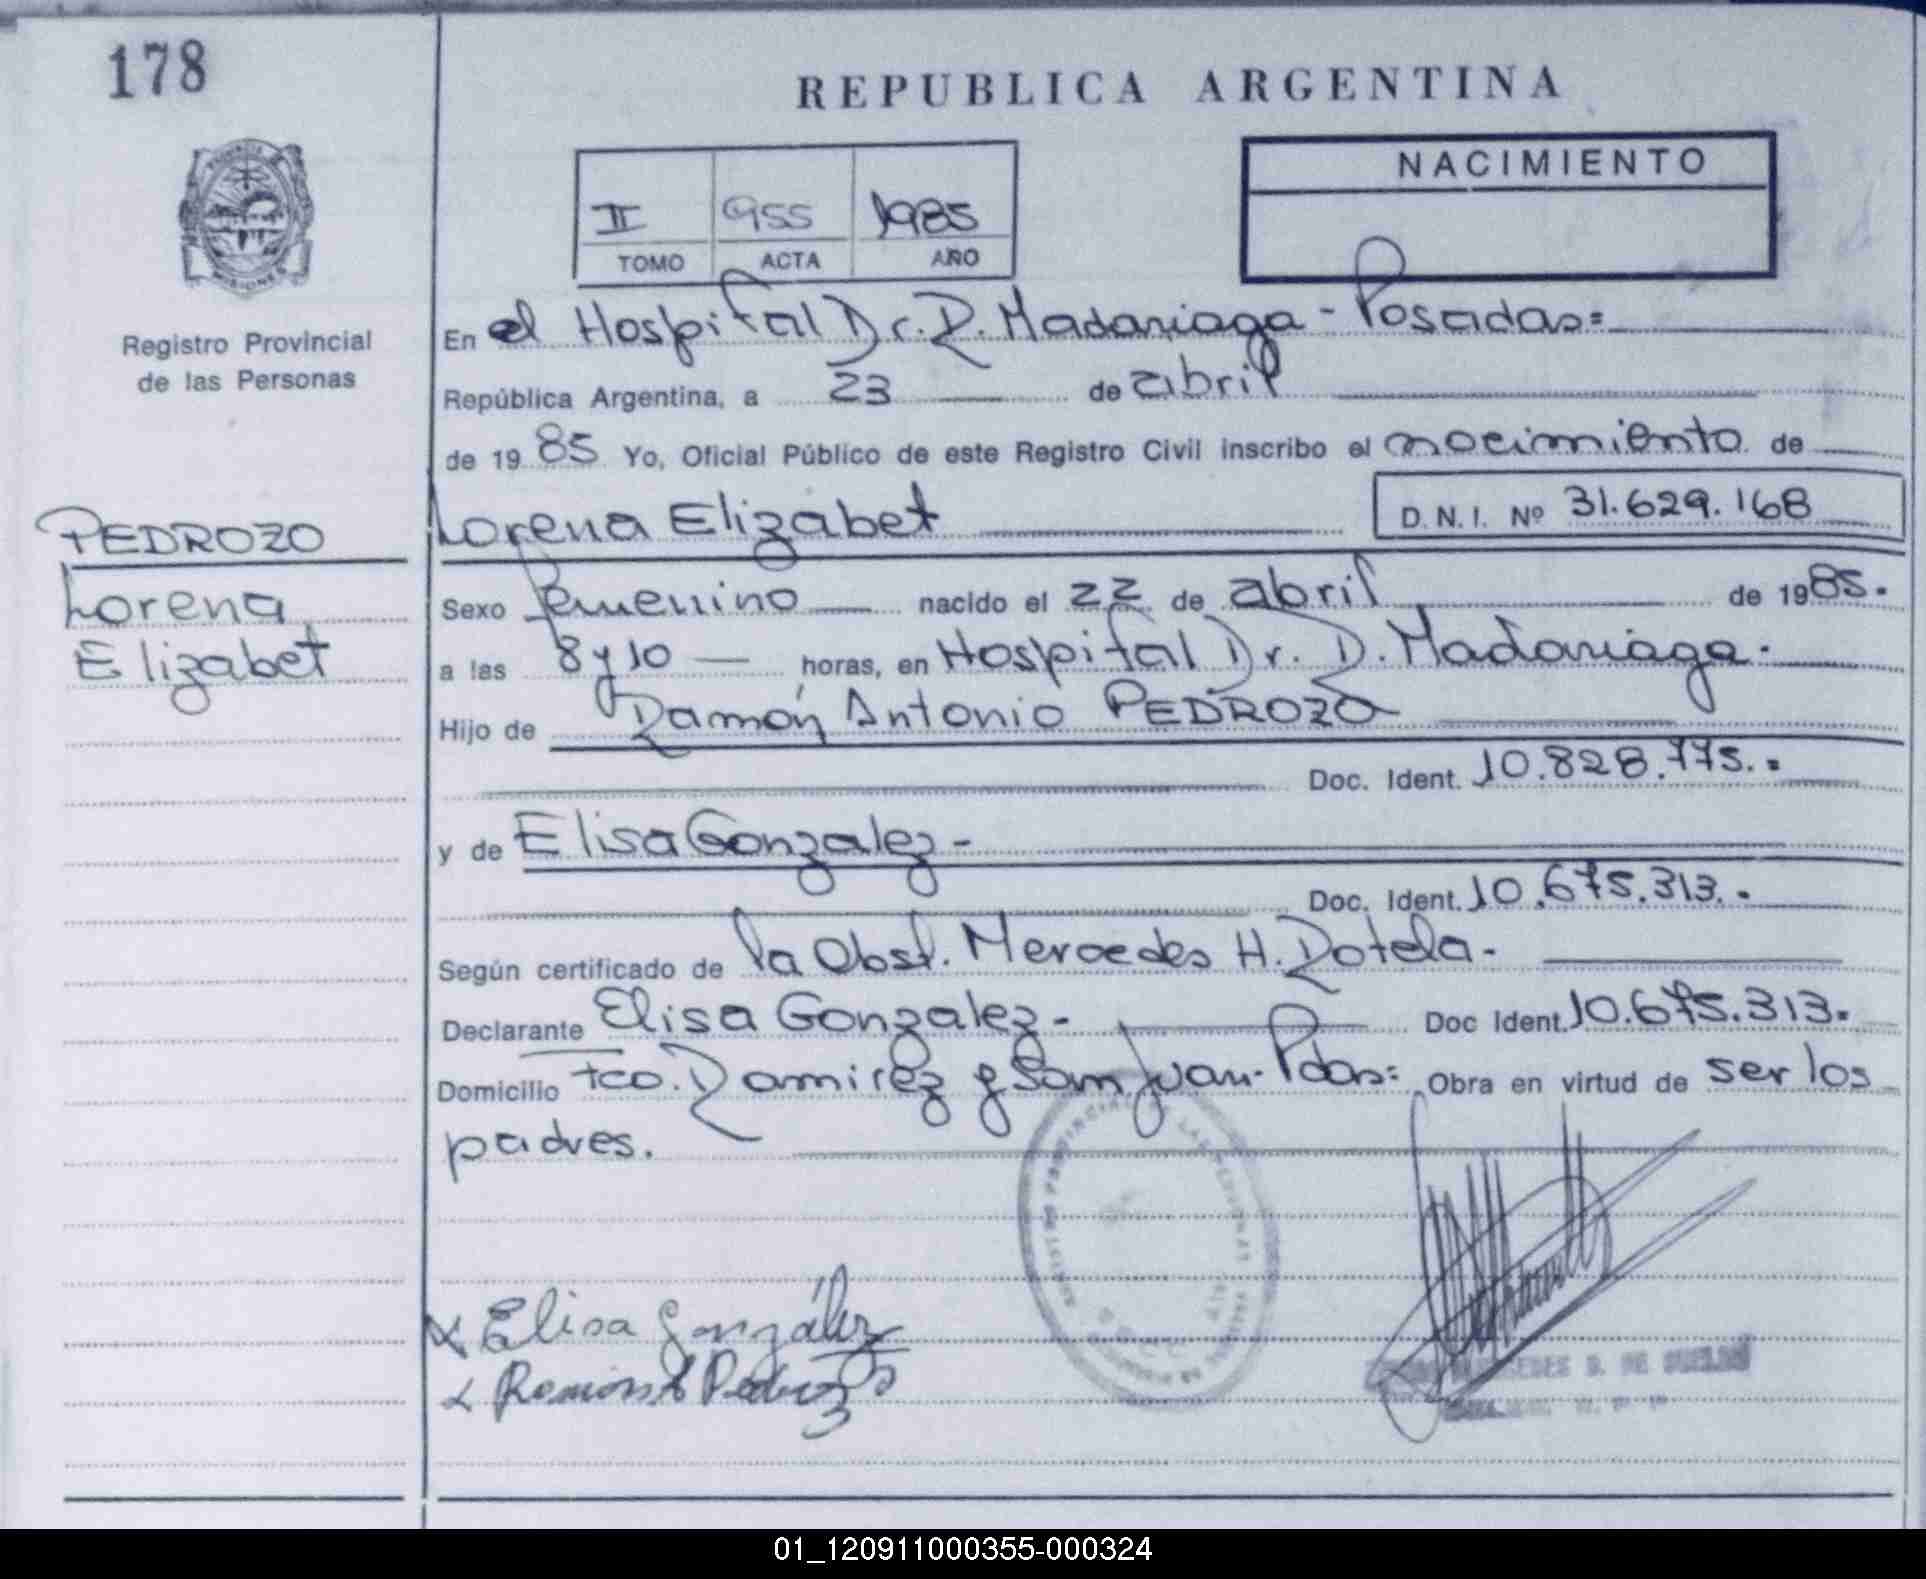 178
REPUBLICA ARGENTINA
NACIMIENTO
II 955 1985
TOMO ACTA AÑO
Registro Provincial
de las Personas
En el Hospital Dr. R. Madariaga - Posadas=
República Argentina, a 23 de abril
de 19 85 Yo, Oficial Público de este Registro Civil inscribo el nacimiento de
PEDROZO
Lorena
Elizabet
Lorena Elizabet D.N.I. Nº 31.629.168
Sexo femenino nacido el 22 de abril de 1985.
a las 8 y 10 horas, en Hospital Dr. R. Madariaga.
Hijo de Ramón Antonio PEDROZO
Doc. Ident. 10.828.775.
y de Elisa Gonzalez-
Doc. Ident. 10.675.313.
Según certificado de la Obst. Mercedes H. Rotela-
Declarante Elisa Gonzalez- Doc Ident. 10.675.313.
Domicilio Fco. Ramirez y San Juan- Pdas= Obra en virtud de ser los
padres.
Elisa González
Ramón A Pedrozo
01_120911000355-000324